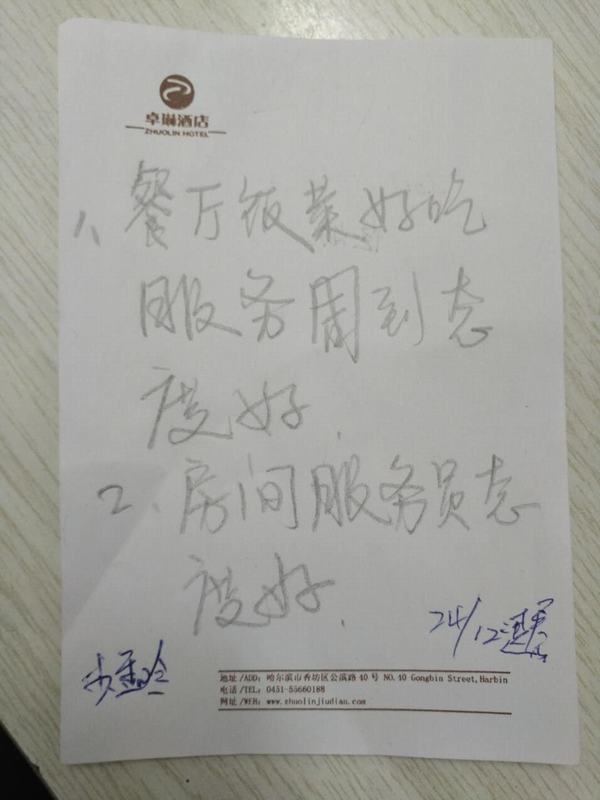 卓琳酒店
ZHUOLIN HOTEL
1、餐厅饭菜好吃
服务周到态
度好.
2、房间服务员态
度好.
24/12
地址/ADD: 哈尔滨市香坊区公滨路40号 NO.40 Gongbin Street,Harbin
电话/TEL: 0451-55660188
网址/WEB: www.zhuolinjiudian.com